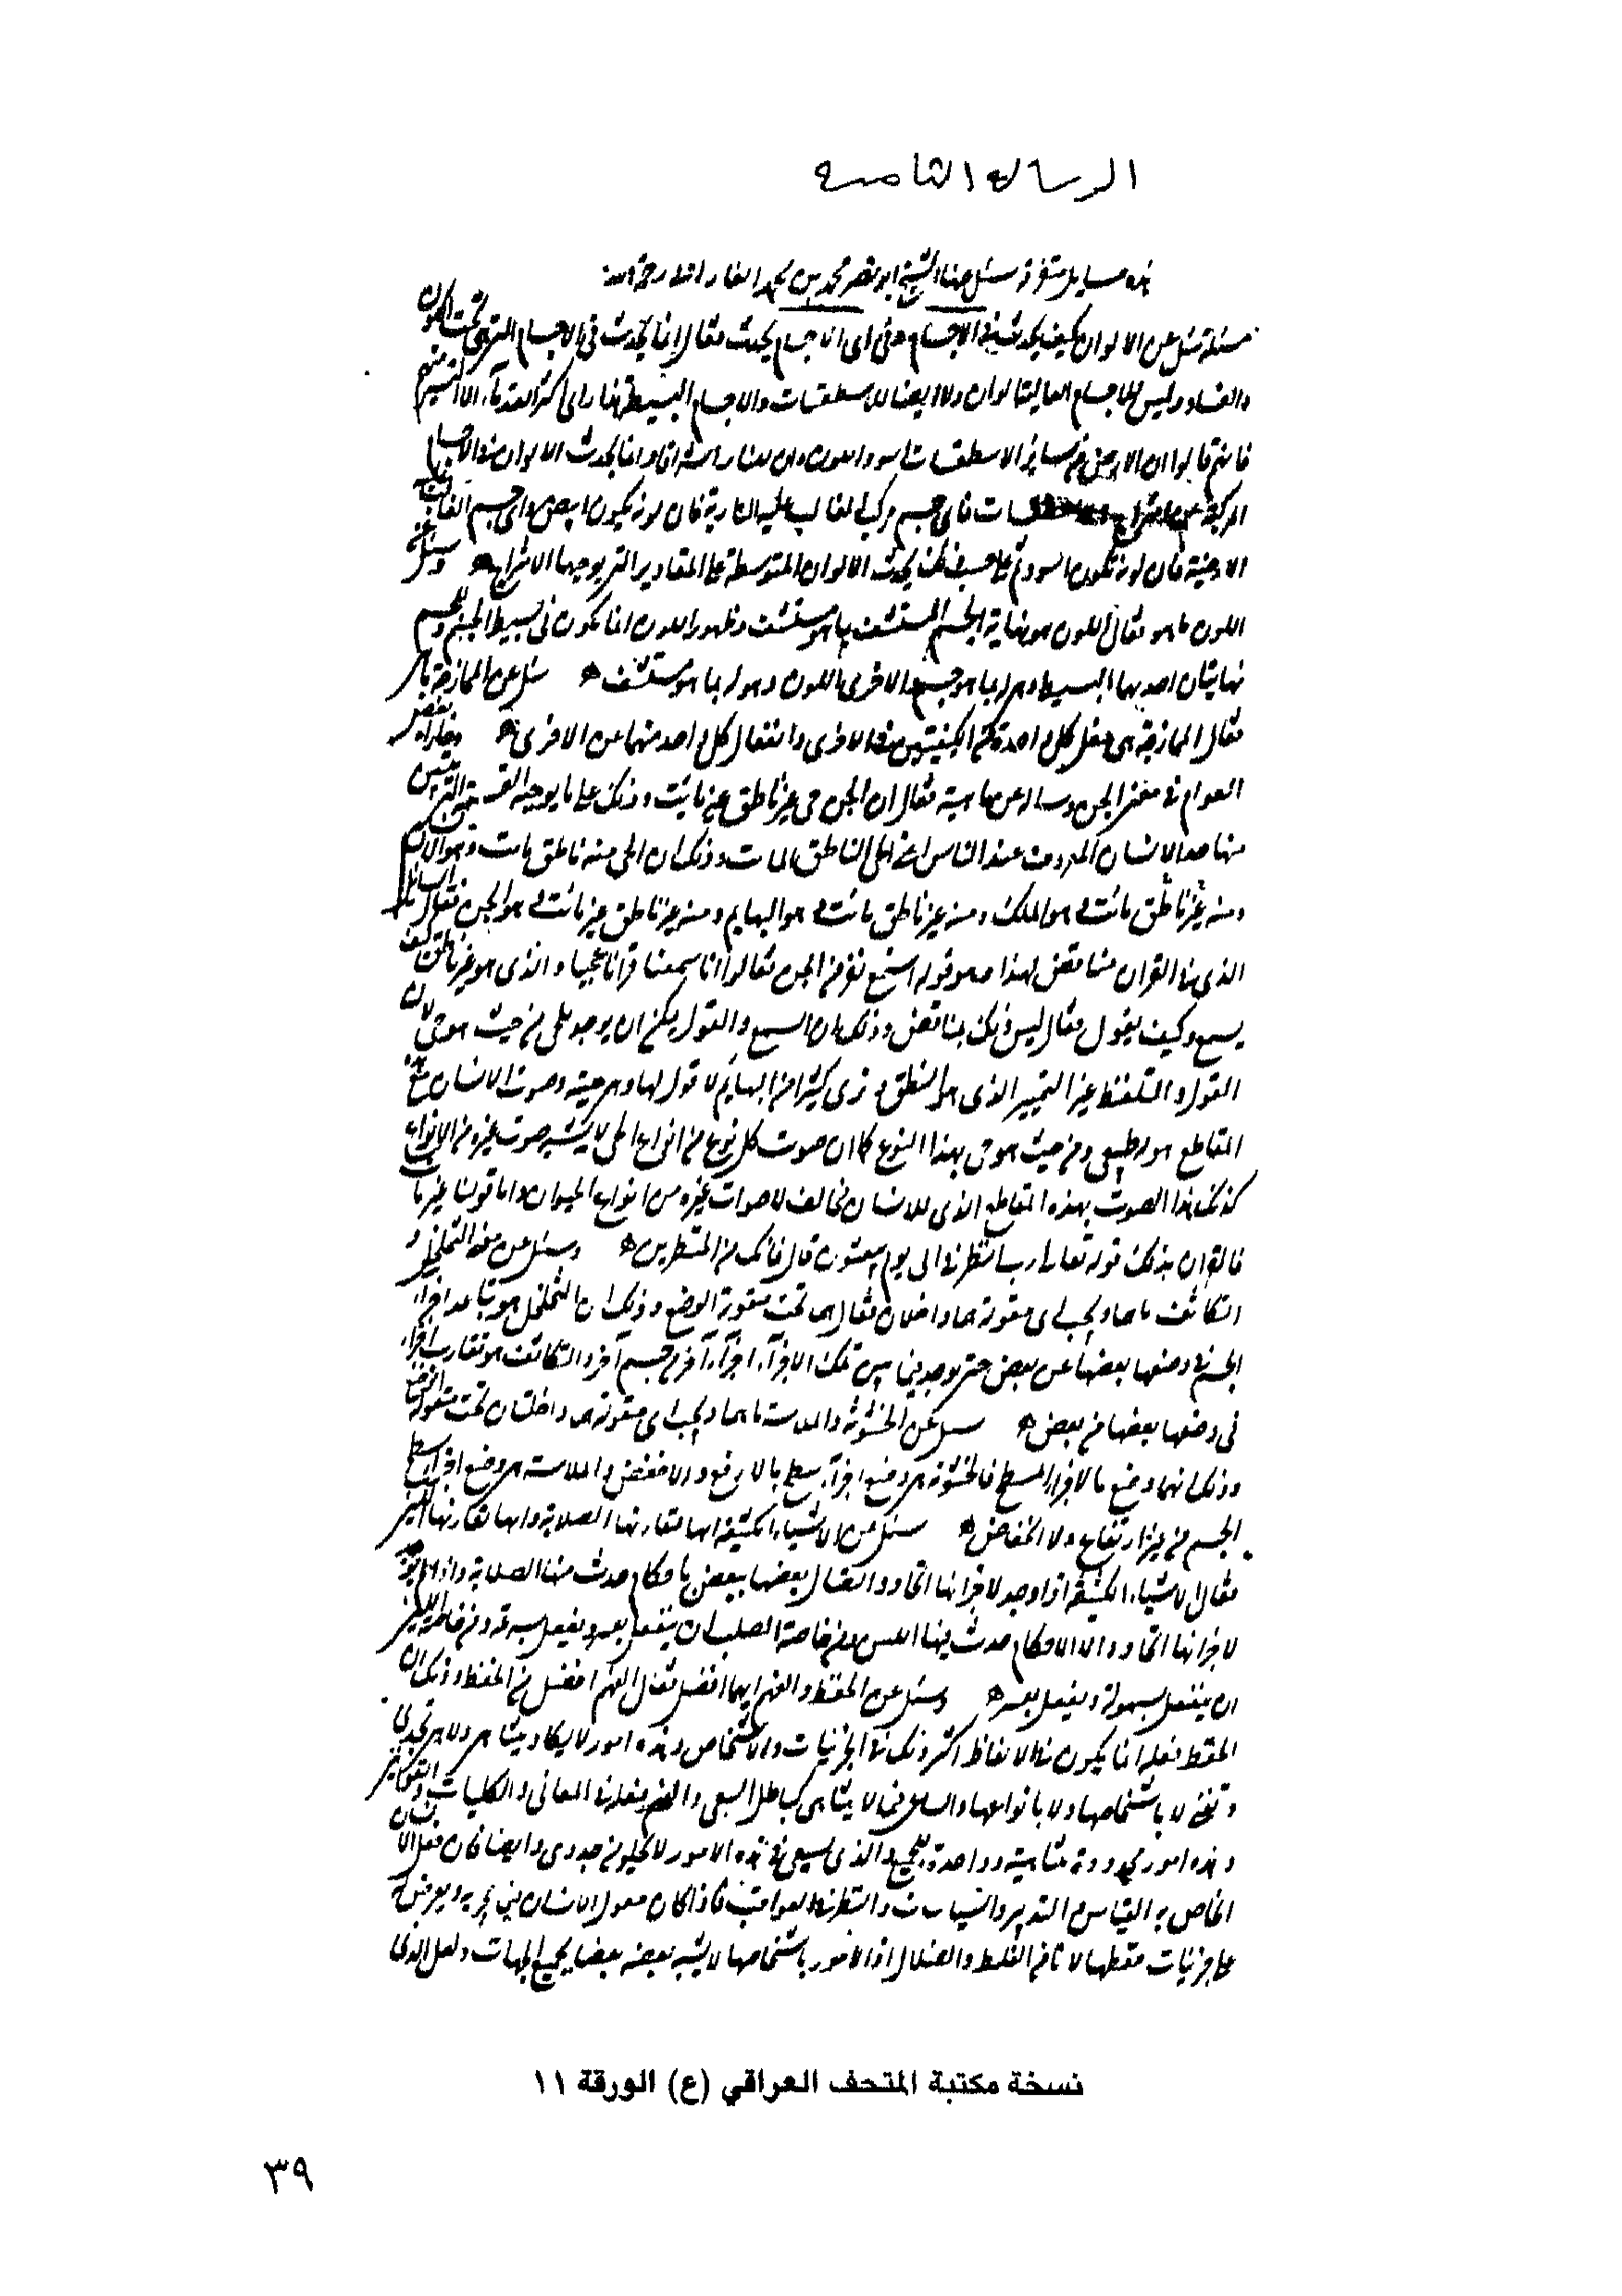 الرسالة الثامنة
هذه مسايل متفرقة سئل عنها الشيخ ابو نصر محمد بن محمد الفارابي رحمه الله
مسئلة سئل عن الالوان كيف يحدث في الاجسام وفي اى الاجسام يحدث فقال انما يحدث في الاجسام التي هي تحت الكون
والفساد وليس للاجسام العالية الوان ولا ايضا للاسطقسات والاجسام البسيطة هذا راى اكثر القدمآء الا اليسير منهم
فانهم قالوا ان الارض من ساير الاسطقسات اسود اللون وان للنار اشراقا وانما يحدث الالوان في الاجسام
المركبة عن امتزاج الاسطقسات فاى جسم مركب الغالب عليه النارية فان لونه يكون ابيض واى جسم الغالب عليه
الارضية فان لونه يكون اسود ثم على حسب ذلك يحدث الالوان المتوسطة على المقادير التي يوجبها الامتزاج وسئل عن
اللون ما هو فقال اللون هو نهاية الجسم المستشف بما هو مستشف وظهور اللون انما يكون في بسيط الجسم وللجسم
نهايتان احديهما البسيط وهي له بما هو جسم والاخرى اللون وهو له بما هو مستشف سئل عن الممازجة ما هي
فقال الممازجة هي فعل كل واحدة من الكيفيتين في الاخرى وانفعال كل واحد منهما عن الاخرى وعما يراه بعض
العوام في معنى الجن وساله عن ماهيته فقال ان الجن حى غير ناطق غير مائت وذلك على ما يوجبه القسمة التي يتبين
منها حد الانسان المعروف عند الناس اعنى الحى الناطق المائت وذلك ان الحى منه ناطق مائت وهو الانسان
ومنه غير ناطق مائت هو الملك ومنه غير ناطق مائت هو البهايم ومنه غير ناطق غير مائت هو الجن فقال السائل
الذى في القران مناقض لهذا وهو قوله استمع نفر من الجن فقالوا انا سمعنا قرانا عجبا والذى هو غير ناطق كيف
يسمع وكيف يقول فقال ليس ذلك بمناقض وذلك ان السمع والقول يمكن ان يوجد للحى من حيث هو حى لان
القول والتلفظ غير التمييز الذى هو النطق وترى كثيرا من البهايم لا قول لها وهي حية وصوت الانسان مع هذه
المقاطع هو له طبيعى ومن حيث هو حى بهذا النوع كما ان صوت كل نوع من انواع الحى لا يشبه صوت غيره من الانواع
كذلك هذا الصوت بهذه المقاطع الذى للانسان مخالف لاصوات غيره من انواع الحيوان واما قولنا غير مائت
فالقران يدلك قوله تعالى رب انظرنى الى يوم يبعثون قال فانك من المنظرين وسئل عن معنى التخلخل و
التكاثف ما هما وتحت اى مقولة هما داخلان فقال هما تحت مقولة الوضع وذلك ان التخلخل هو تباعد اجزاء
الجسم في وضعها بعضها عن بعض حتى يوجد فيما بين تلك الاجزآء اجزآء اخر من جسم آخر والتكاثف هو تقارب اجزاء
في وضعها بعضها من بعض سئل عن الخشونة والملاسة ما هما وتحت اى مقولة هما داخلتان تحت مقولة الوضع
وذلك انهما وضع ما لاجزاء السطح فالخشونة هي وضع اجزآء سطح بالارفع والاخفض والملاسة هي وضع اجزاء سطح
الجسم من غير ارتفاع ولا انخفاض سئل عن الاشياء الكثيفة ايها تقارنها الصلابة وايها تقارنها اللين
فقال الاشياء الكثيفة اذا وجد لاجزائها اتحاد واتصال بعضها ببعض باحكام حدث منها الصلابة واذا لم يوجد
لاجزائها اتحاد والا الاحكام حدث فيها اللين ومن خاصة الصلب ان ينفعل بعسر ويفعل بسرعة ومن خاصية اللين
ان ينفعل بسهولة ويفعل بعسر وسئل عن الحفظ والفهم ايهما افضل فقال الفهم افضل من الحفظ وذلك ان
الحفظ فعله انما يكون في الالفاظ اكثر وذلك في الجزئيات والاشخاص وهذه امور لا يكاد يتناهى ولا هي تجدى
وتغنى لا باشخاصها ولا بانواعها والساعى فيما لا يتناهى كباطل السعى والفهم فعله في المعانى والكليات والقوانين
وهذه امور محدودة متناهية وواحدة للجميع والذى يسعى في هذه الامور لا يخلو من جدوى وايضا فان فعل الانسان
الخاص به القياس والتدبير والسياسات والنظر في العواقب فاذا كان معول الانسان فيما يجربه ويعرض له
على جزئيات حفظها لا يامن الغلط والضلال اذ الامور باشخاصها لا يشبه بعضها بعضا بجميع الجهات ولعل الذى
نسخة مكتبة المتحف العراقي (ع) الورقة ١١
٣٩